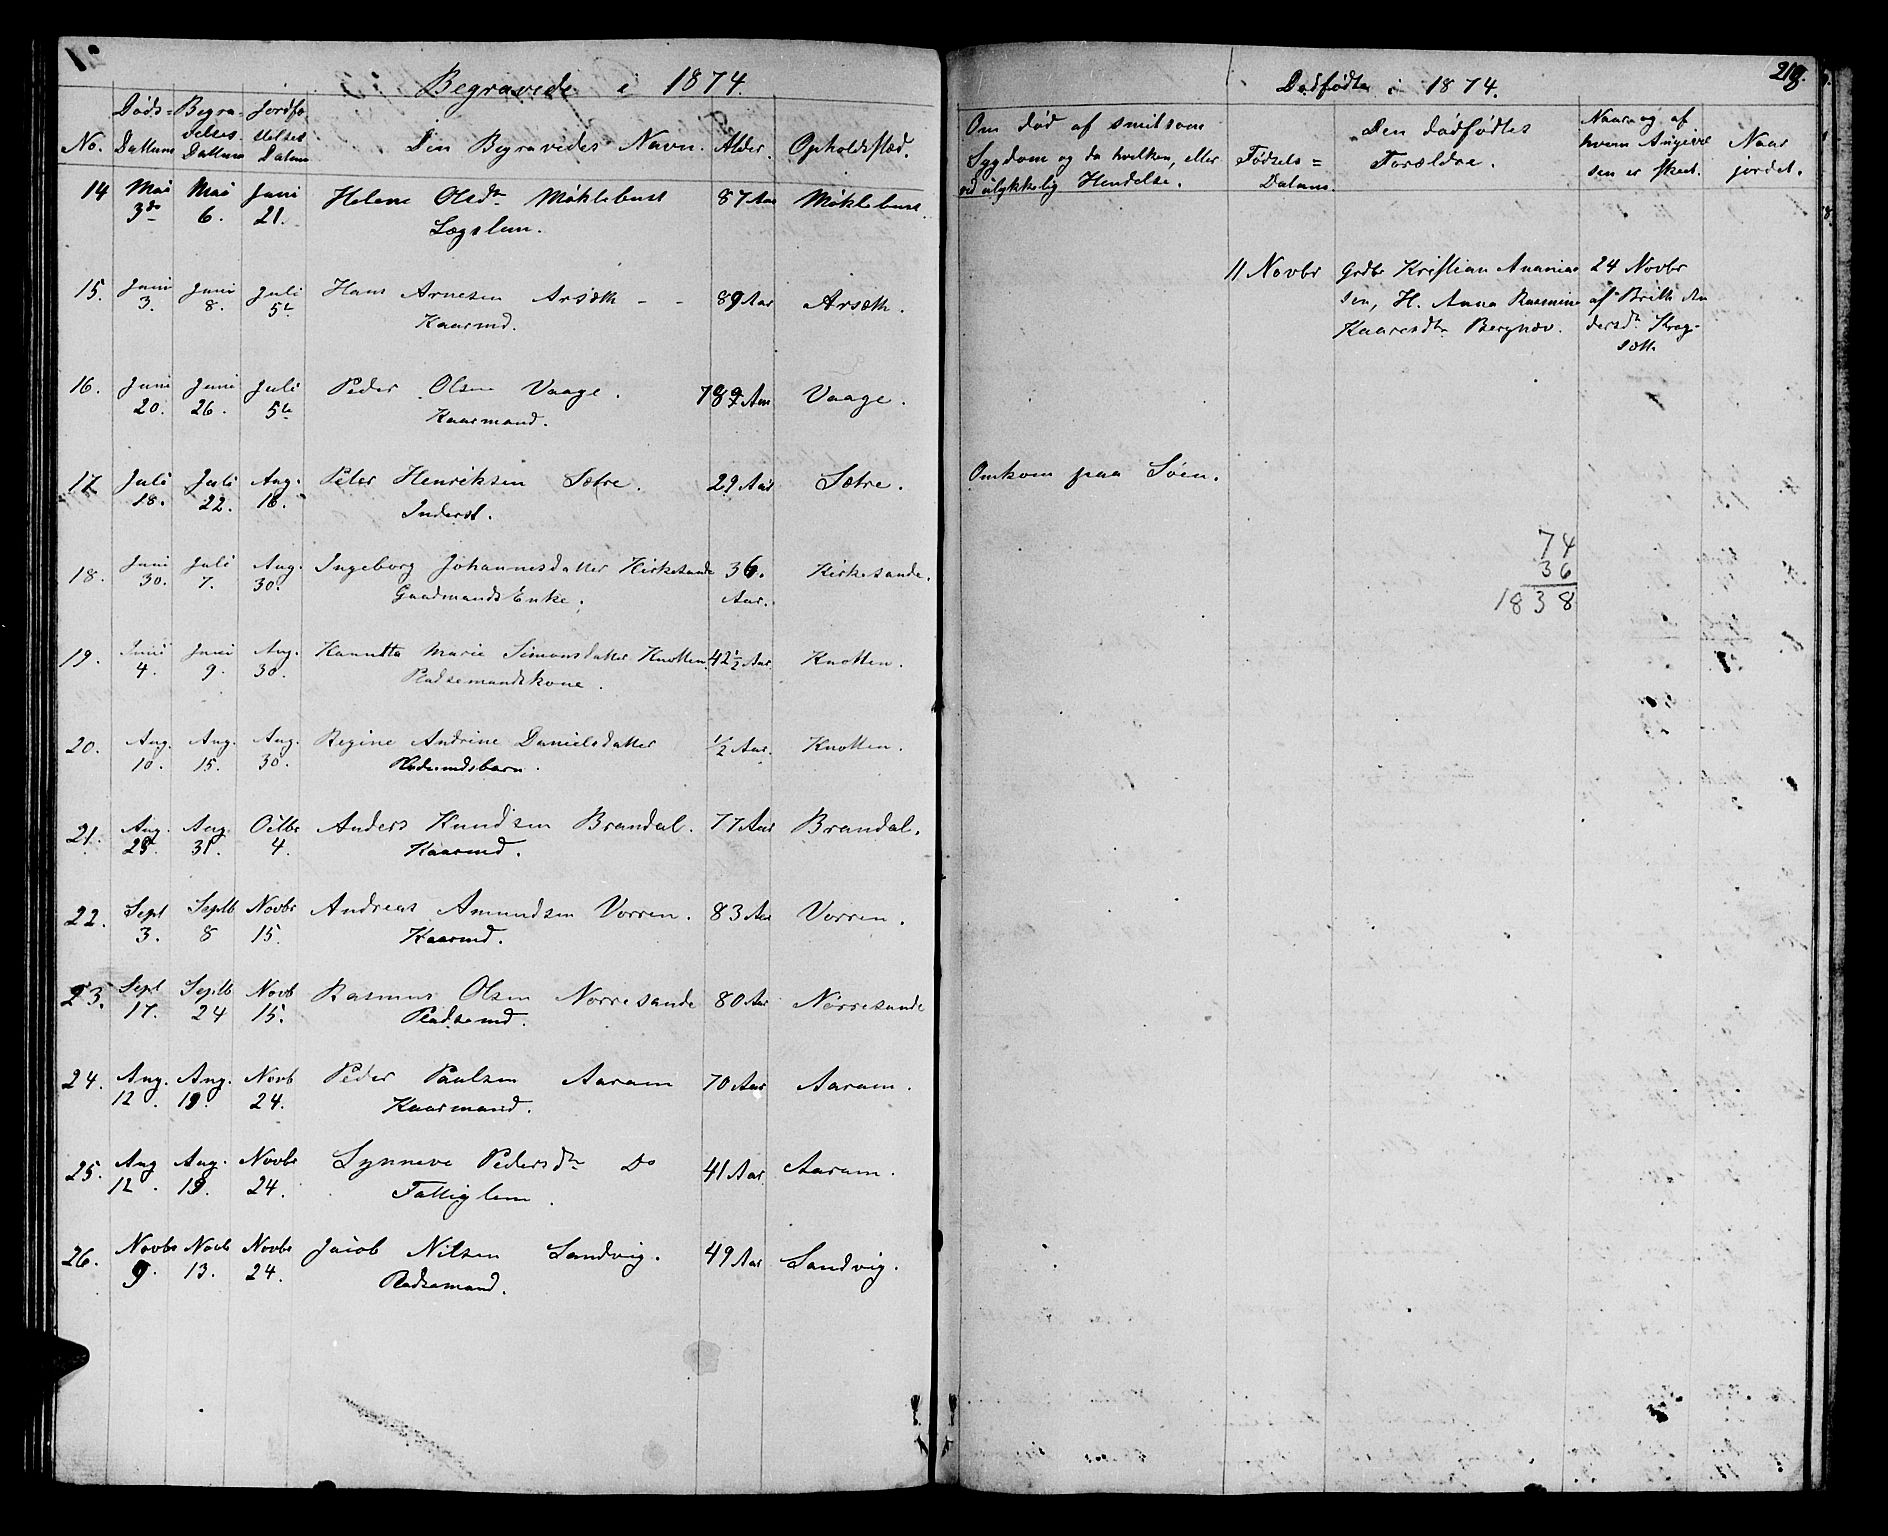 Begravede i 1874.
No. Døds-Dattum Begravelses Dattum Jordfæstelses Datum Den Begravedes Navn. Alder. Opholdsstæd.
14 Mai 3de Mai 6. Juni 21. Helene Olsdtr Møklebust 87 Aar Møklebust.
Lægslem.
15. Juni 3. Juni 8. Juli 5te Hans Arnesen Arsæth - - 89 Aar Arsæth.
Kaarmd.
16. Juni 20. Juni 26. Juli 5te Peder Olsen Vaage. Aar Vaage.
Kaarmand.
17 Juli 18. Juli 22. Aug. 16. Peter Henriksen Sætre. 29 Aar Sætre.
Inderst.
18. Juni 30. Juli 7. Aug. 30. Ingeborg Johannesdatter Kirkesande 36. Aar. Kirkesande.
Gaardmands Enke.
19. Juni 4. Juni 9. Aug. 30. Hanutta Marie Simonsdatter Knotten 42 1/2 Aar Knotten.
Pladsemandskone.
20. Aug. 10. Aug. 15. Aug. 30. Regine Andrine Danielsdatter 1/2 Aar. Knotten.
Pladsmdsbarn.
21. Aug. Aug. 31. Octbr 4. Anders Knudsen Brandal. 77 Aar Brandal.
Kaarmd.
22. Sept 3. Septb 8 Novbr 15. Andreas Amundsen Vorren. 83 Aar Vorren.
Kaarmd.
23. Sept 17. Septb 24 Novb 15. Rasmus Olsen Nörresande 80 Aar Nörresande
Pladsemd.
24. Aug. 12. Aug. 19. Novb 24. Peder Paulsen Aaram 70 Aar Aaram.
Kaarmand.
25. Aug 12. Aug. 19. Novbr 24. Synneve Pedersdtr Do 41 Aar Aaram.
Fattiglem.
26. Novbr 9. Novb 13. Novbr 24. Jacob Nilsen Sandvig. 49 Aar Sandvig.
Pladsemand.
219.
Dødfødte i 1874.
Om død af smitsom
Sygdom og da hvilken, eller
ved ulykkelig Hendelse.
Fødsels=
Datum.
Den dødfødtes
Forældre.
Naar og af
hvem Angivel
sen er skeet.
Naar
jordet.
11 Novbr Grdbr Kristian Ananias 24 Novbr
sen, H. Anna Rasmine af Britte An
Kaaresdtr Bergnæv. dersdtr Krog-
sætt
Omkom paa Söen.
74
36
1838